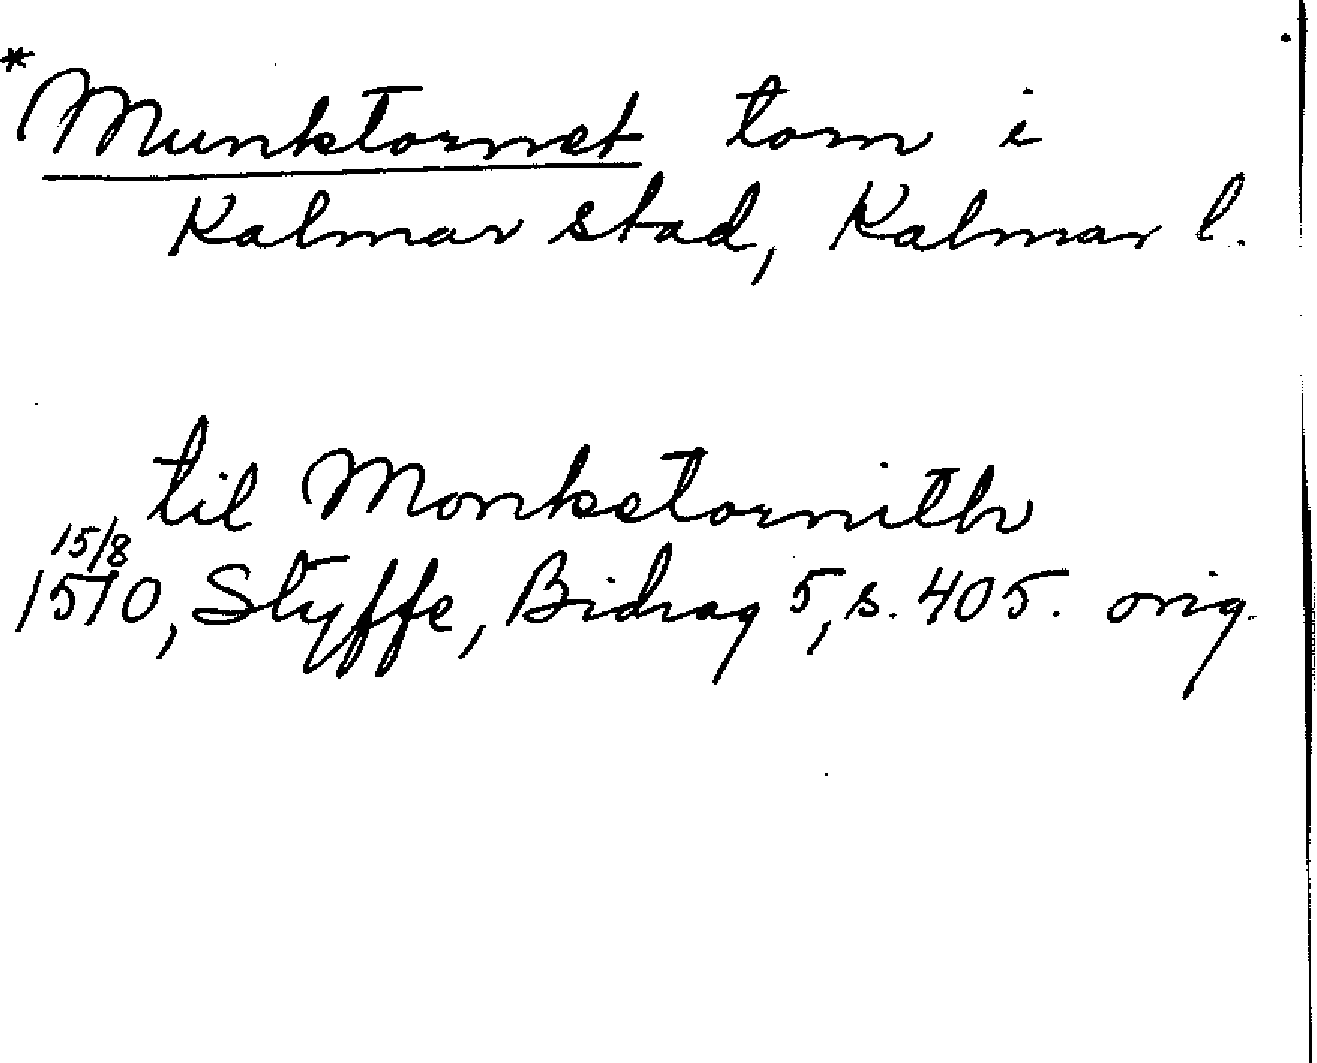 *Munktornet torn i
Kalmar stad, Kalmar l.
til Monketornith
15/8
1510, Styffe, Bidrag 5, s. 405. orig.